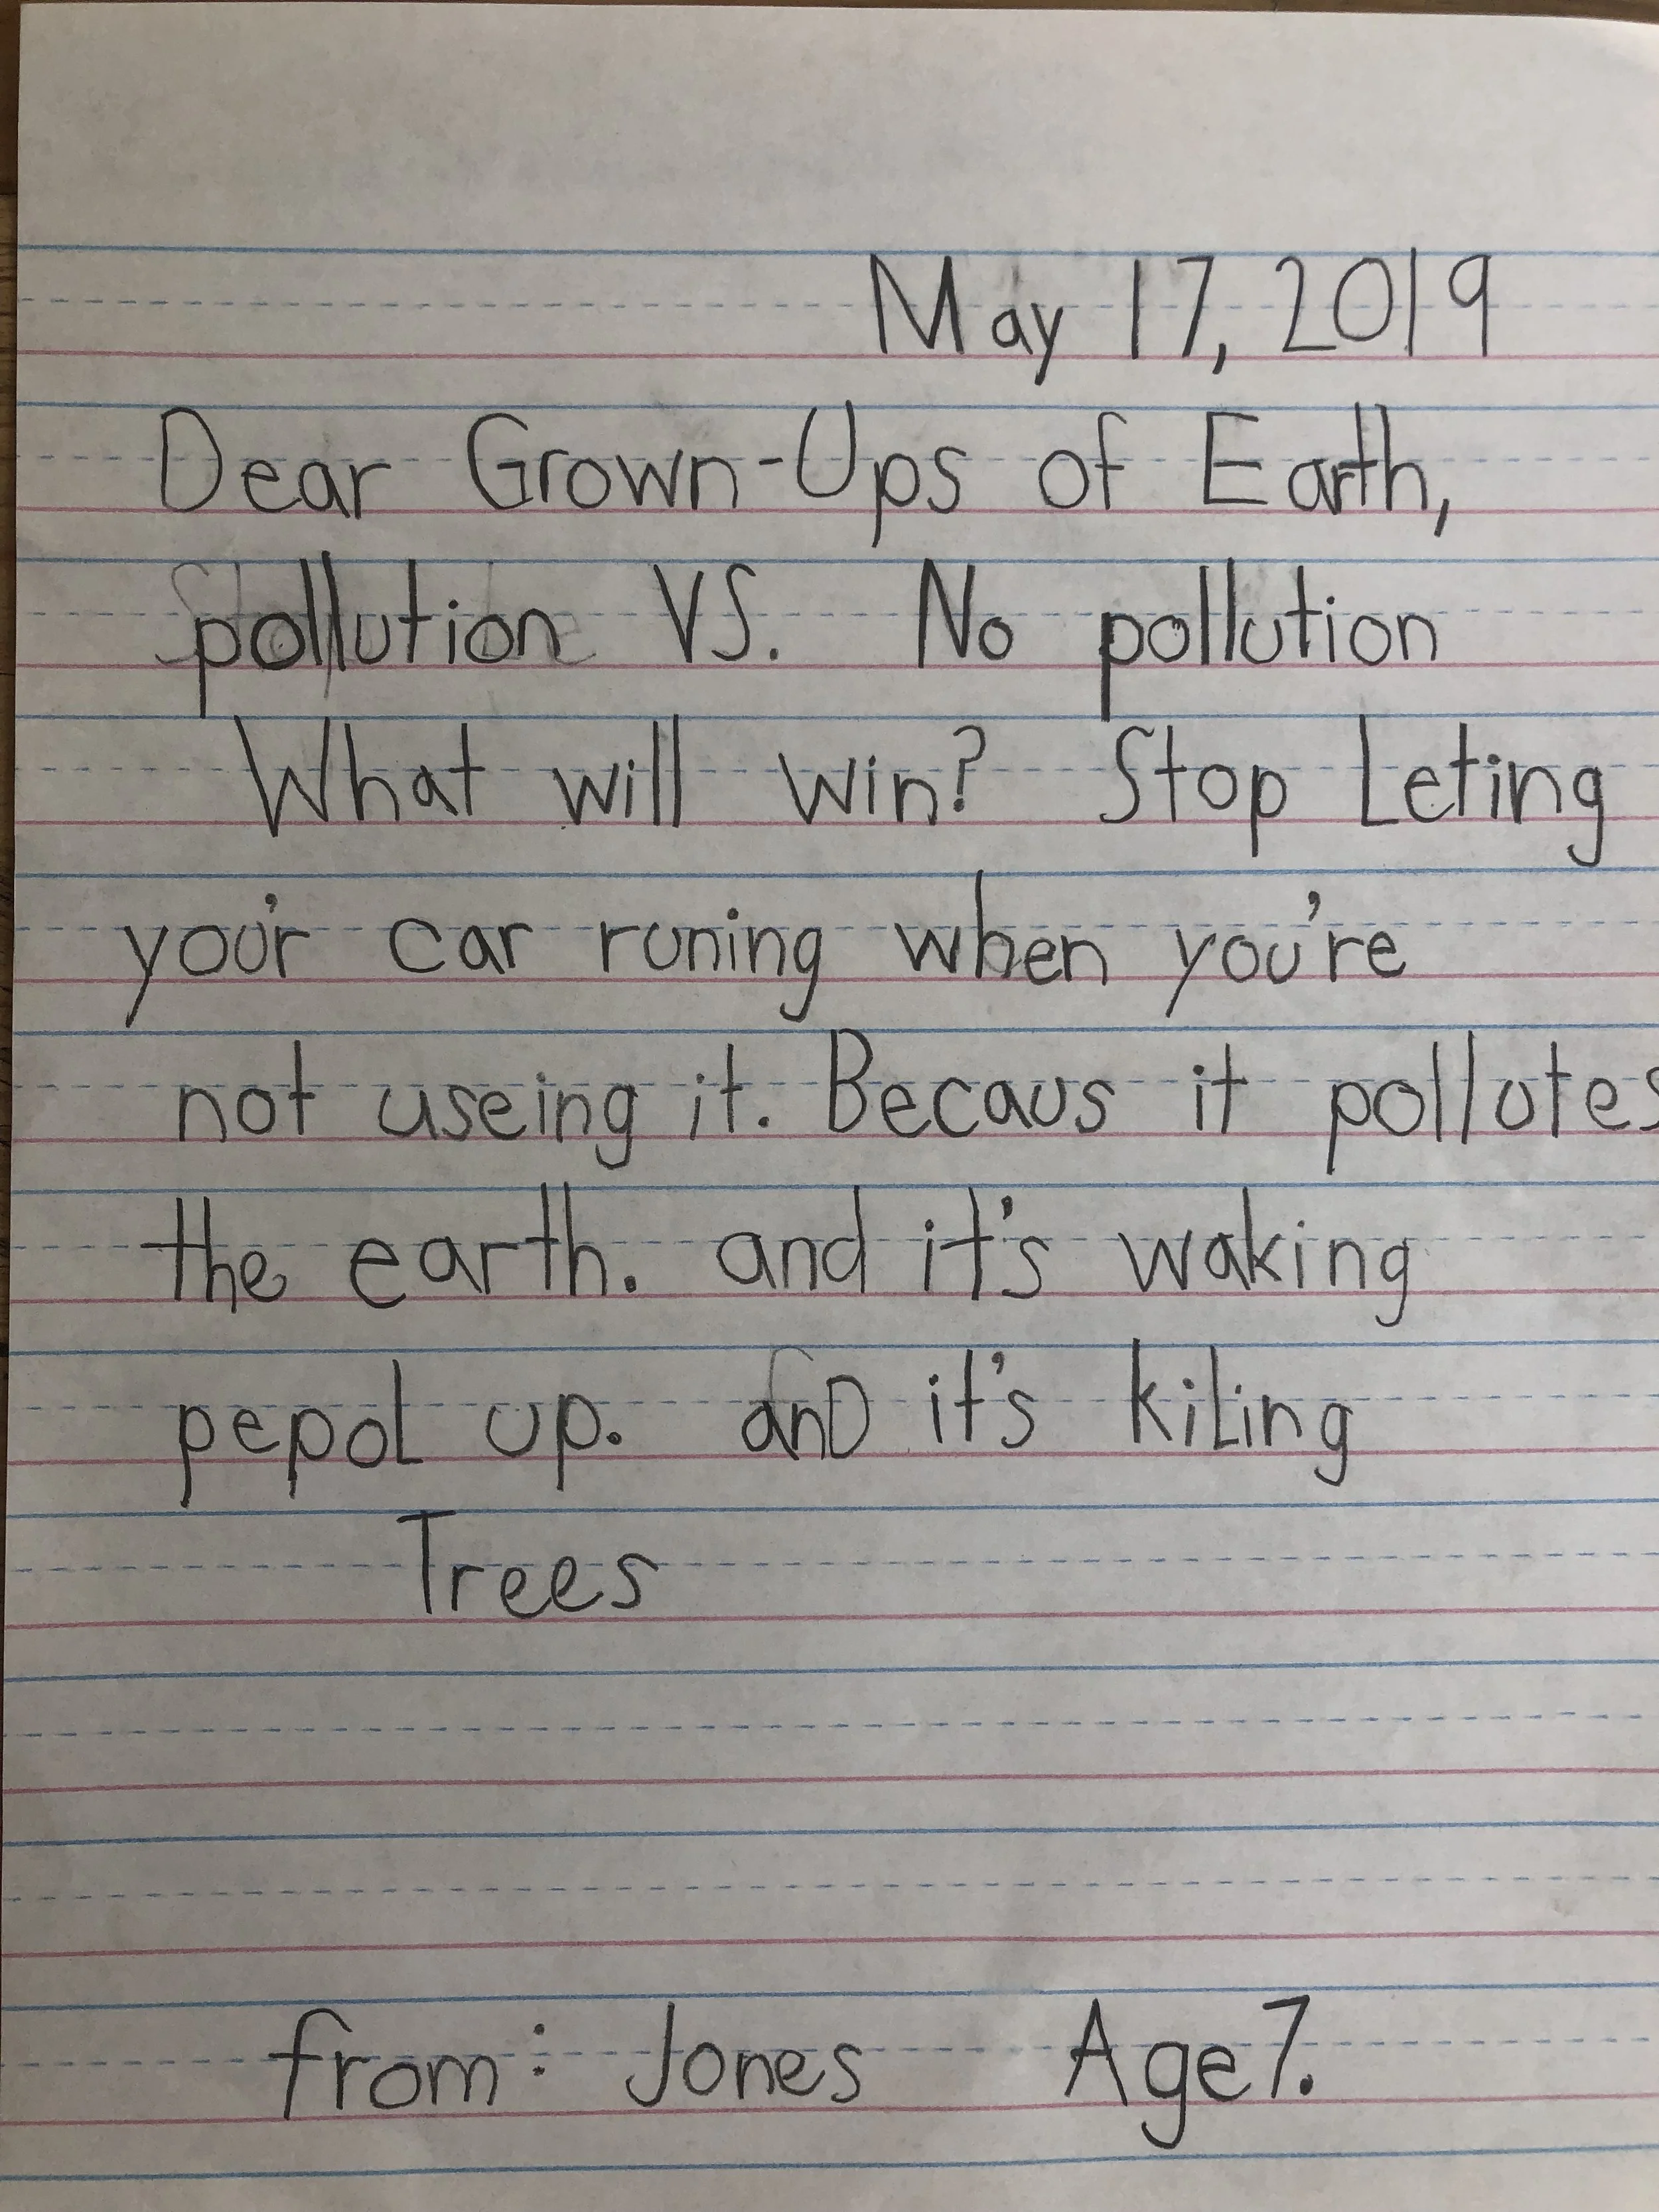 May 17, 2019
Dear Grown-Ups of Earth,
pollution VS. No pollution
What will win? Stop Leting
you'r car runing when you're
not useing it. Becaus it pollutes
the earth. and it's waking
pepol up. anD it's kiLing
Trees
from: Jones Age 7.